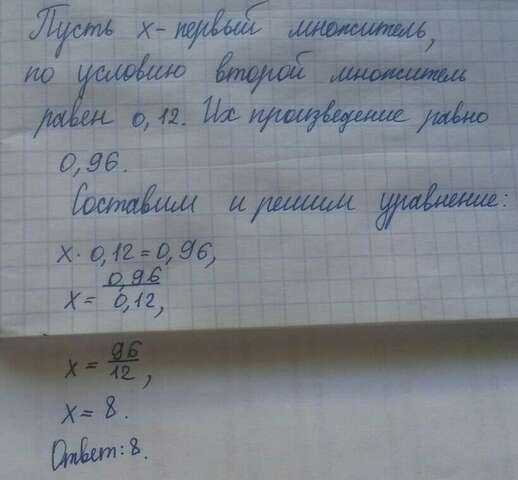 Пусть x - первый множитель,
по условию второй множитель
равен 0,12. Их произведение равно
0,96.
Составим и решим уравнение:
x · 0,12 = 0,96,
x = 0,96 / 0,12,
x = 96 / 12,
x = 8.
Ответ: 8.